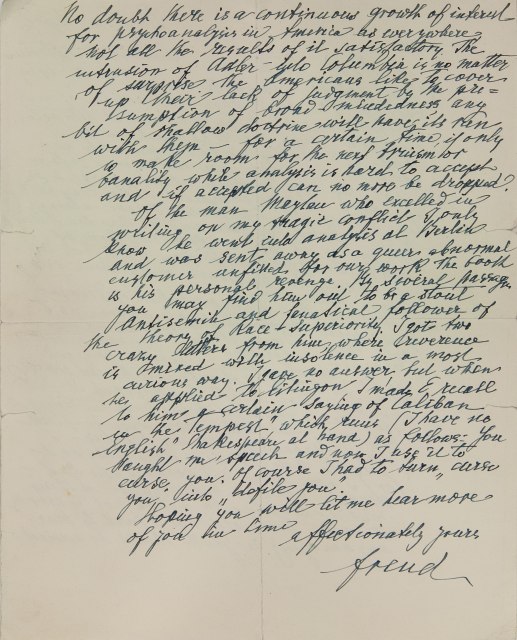 No doubt there is a continuous growth of interest
for psychoanalysis in America as everywhere
not all the results of it satisfactory. The
intrusion of Adler into Columbia is no matter
of surprise the Americans like to cover
up their lack of judgment by the pre=
sumption of broad mindedness any
bit of shallow doctrine will have its run
with them – for a certain time if only
to make room for the next truism or
banality where analysis is hard to accept
and if accepted can no more be dropped.
Of the man Maylan who excelled in
writing on my tragic conflict I only
know he went into analysis at Berlin
and was sent away as a queer abnormal
customer unfitted for our work. The book
is his personal revenge. By several passages
you may find him out to be a stout
Antisemit and fanatical follower of
the theory of Race-Superiority. I got two
crazy letters from him, where reverence
is mixed with insolence in a most
curious way. I gave no answer but when
he applied to Eitingon I made recall
to him a certain saying of Caliban
in the "Tempest" which runs (I have no
English Shakespeare at hand) as follows: You
taught me speech and now I use it to
curse you. Of course I had to turn „curse
you" into „defile you".
Hoping you will let me hear more
of you in time
affectionately yours
Freud